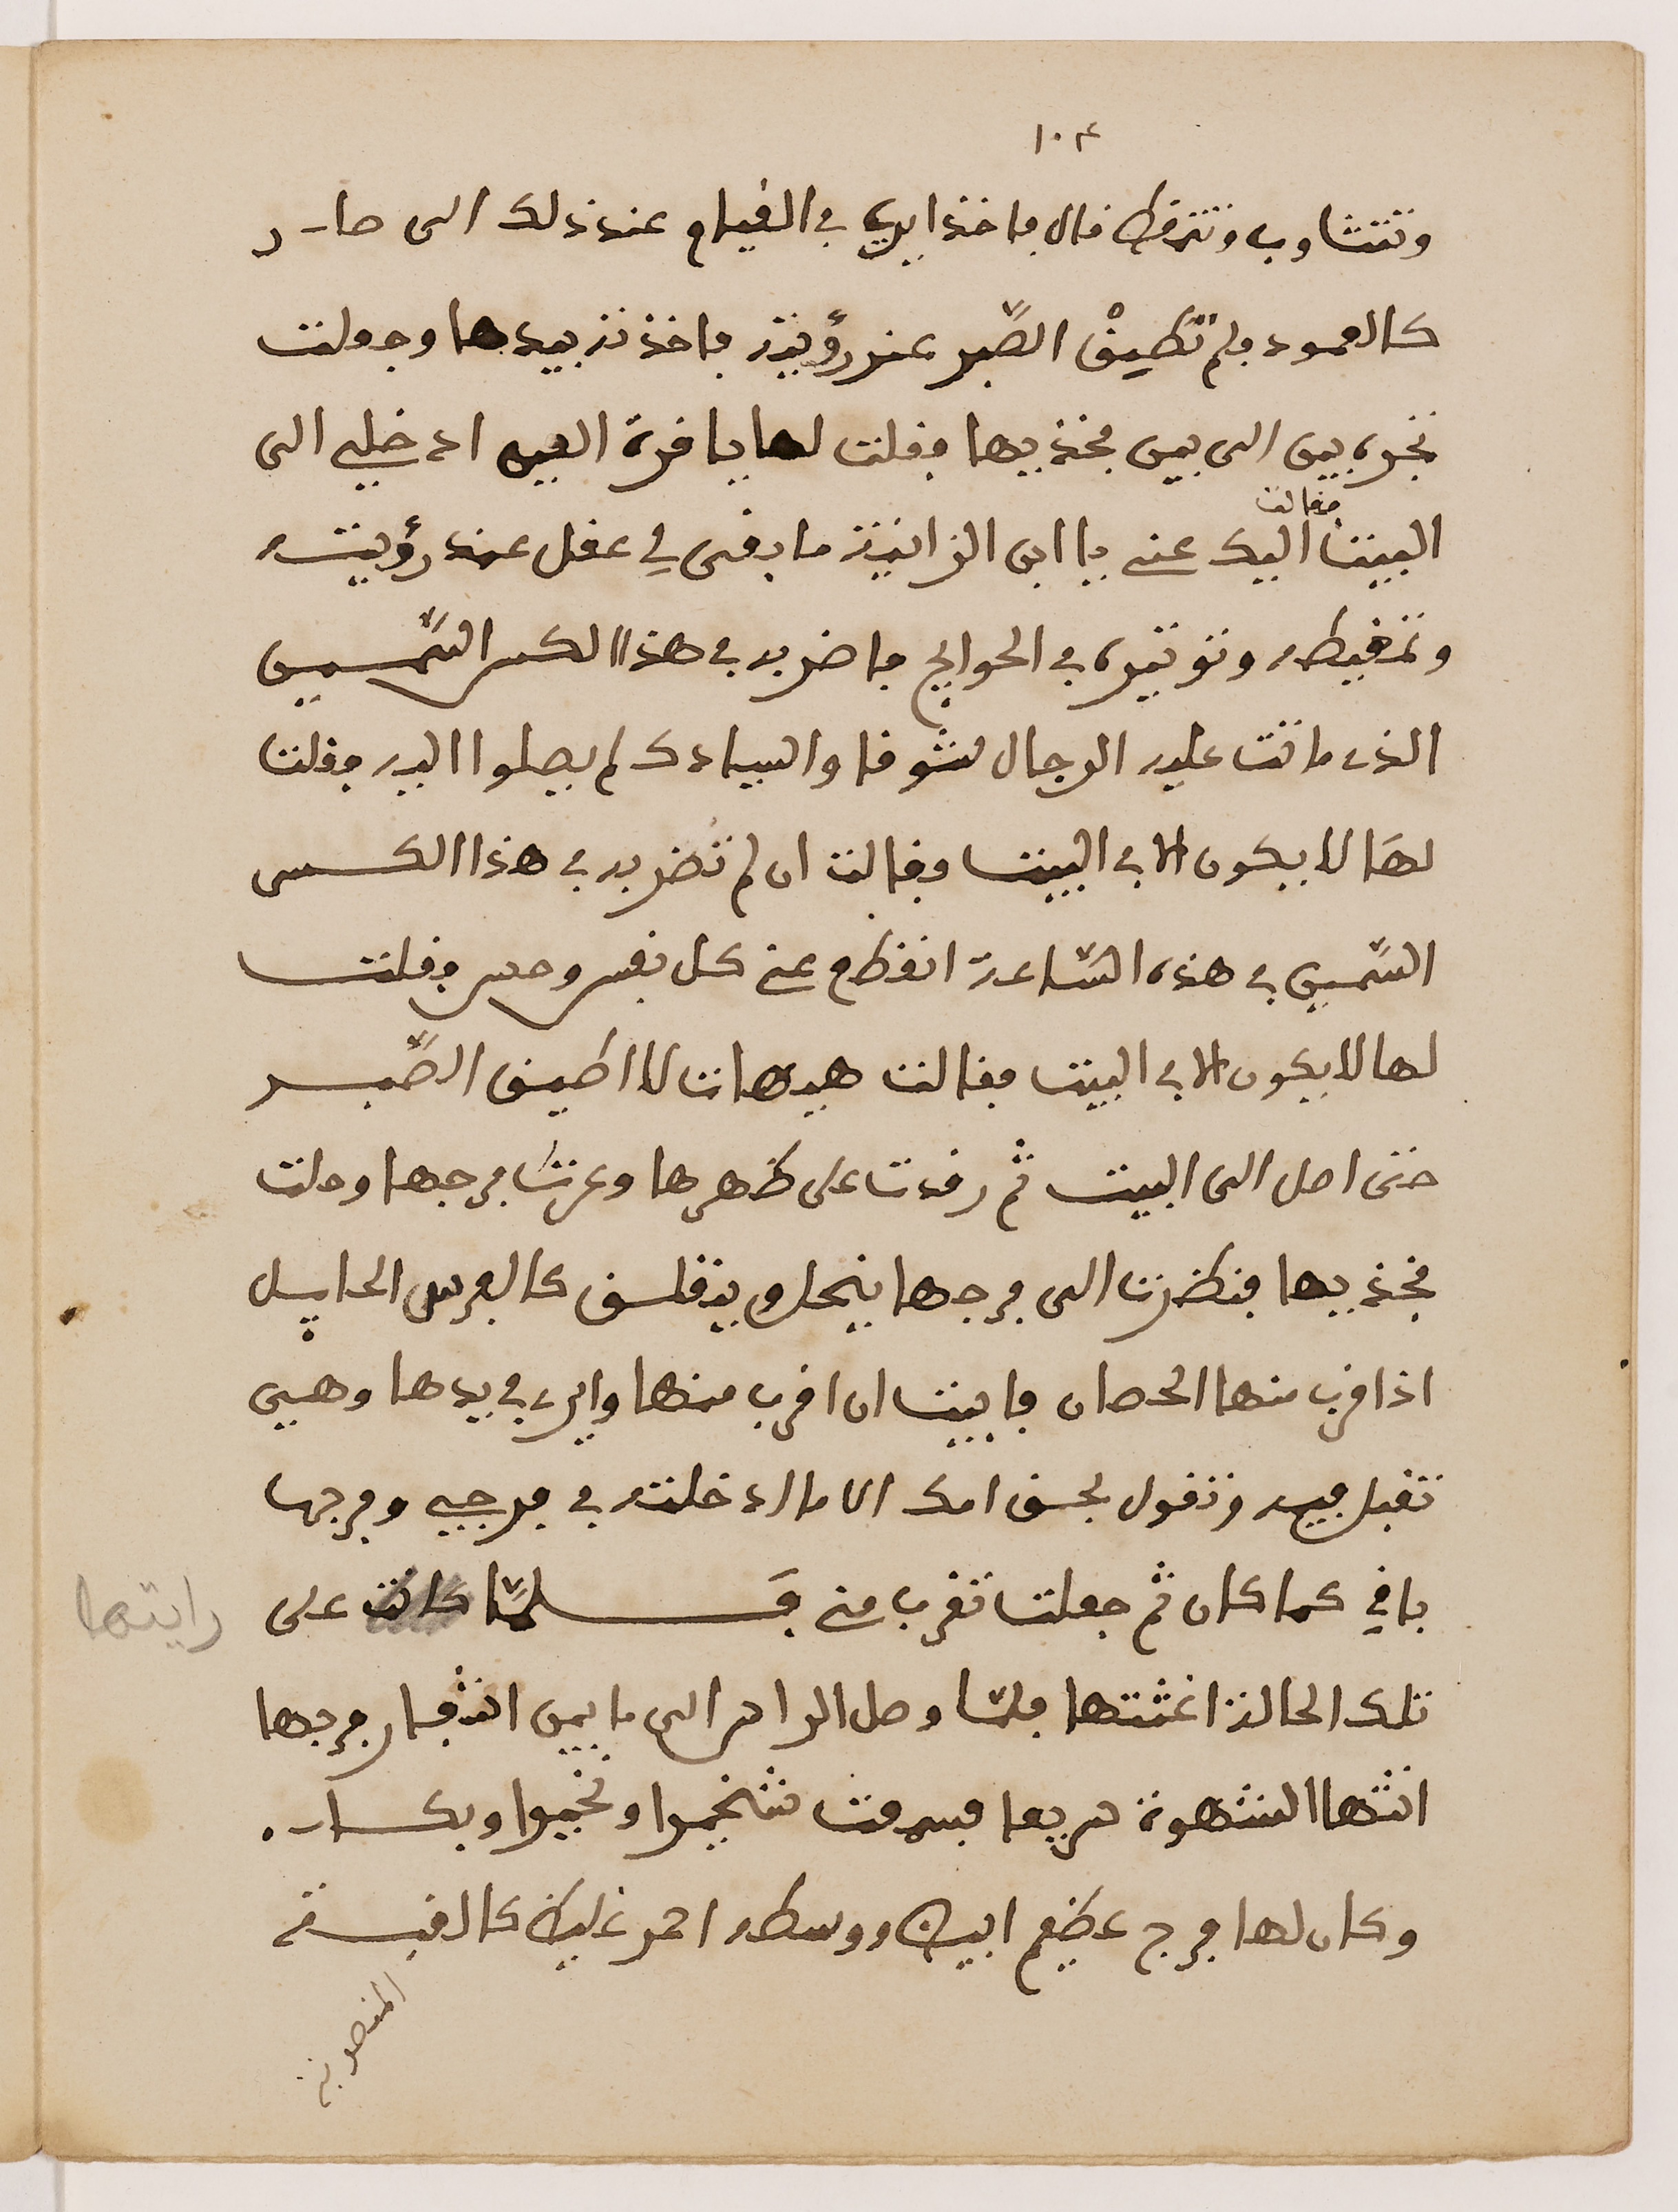 ١٠٣
وتتثاوب وتتمطى فال فاخذ ايري في القيام عند ذلك الى صار
كالعمود ولم تطيق الصّبر عند رؤيته فاخذته بيدها وجعلت
تجره بين الى بين فخذيها فقلت لها يا قرة العين ادخلي الى
فقالت
البيت اليك عني يا ابن الزانية ما بقى لي عقل عند رؤيته
وتمغيطه وتوتيره في الحوايج فاضربه في هذا الكس السّمين
الذي ماتت عليه الرجال شوقا والسيادك لم يصلوا اليه فقلت
لها لا يكون الا في البيت وقالت ان لم تضربه في هذا الكس
السّمين في هذه السّاعة انقطع عني كل نفس وحس فقلت
لها لا يكون الا في البيت فقالت هيهات لا اطيق الصّبر
حتى اصل الى البيت ثم رقدت على ظهرها وعرت فرجها وحلت
فخذيها فنظرت الى فرجها ينحل ويتقلسق كالفرس الحايل
اذا قرب منها الحصان فابيت ان اقرب منها وايري في يدها وهي
تقبل فيه وتقول بحق امك الا ما ادخلته في فرجي وفرجها
باقي كما كان ثم جعلت تقرب مني فلمّا كانت على
رايتها
تلك الحالة اغثتها فلمّا وصل الراس الى ما بين اشفار فرجها
اتتها الشهوة سريعا فشهقت شخيرا ونخيرا وبكاء
وكان لها فرج عظيم ابيض ووسطه احمر غليظ كالقبة
المنصوبة